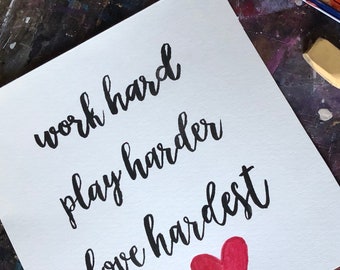 work hard
play harder
love hardest